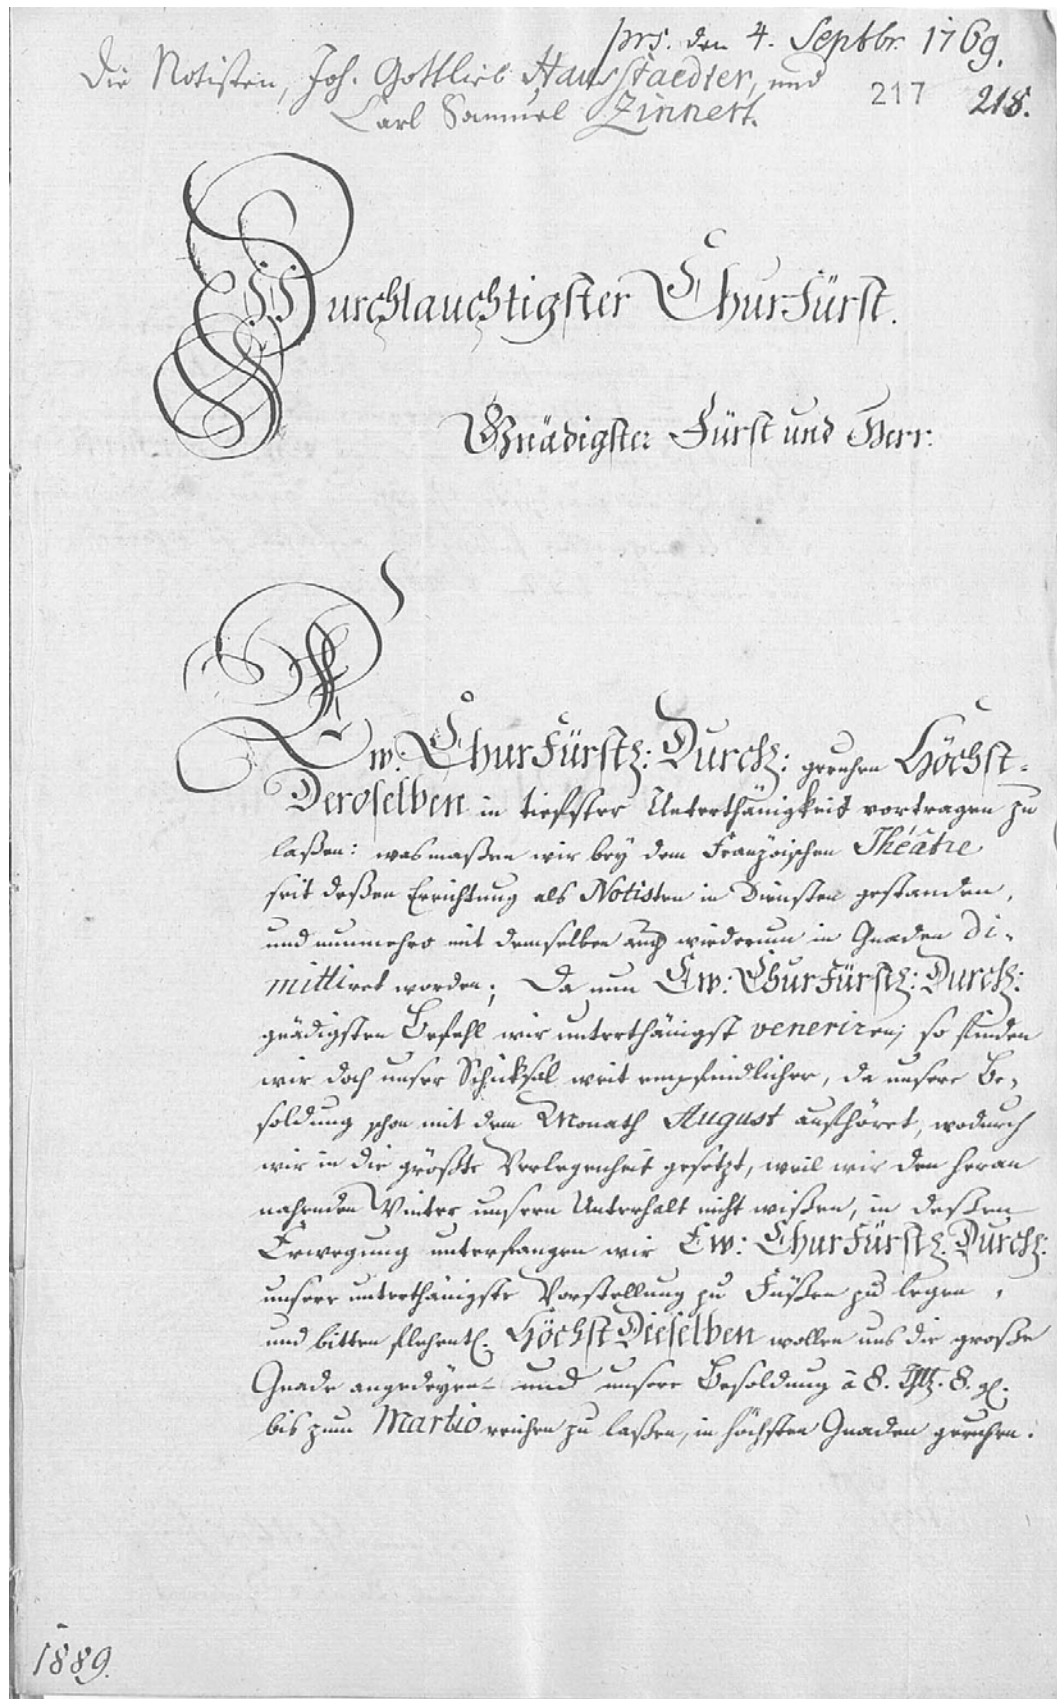 prs. den 4. Septbr. 1769.
Die Notisten, Joh. Gottlieb Hausstaedter, und
217 218.
Carl Samuel Zinnert.
Durchlauchtigster ChurFürst.
Gnädigster Fürst und Herr.
Ew. ChurFürstl: Durchl: geruhen Höchst-
Deroselben in tiefster Unterthänigkeit vortragen zu
laßen: was maßen wir bey dem Französischen Théâtre
seit deßen Errichtung als Notisten in Diensten gestanden,
und nunmehro mit demselben auch wiederum in Gnaden di-
mittiret worden; Da nun Ew: ChurFürstl: Durchl:
gnädigsten Befehl wir unterthänigst veneriren; so finden
wir doch unser Schicksal weit empfindlicher, da unsere Be-
soldung schon mit dem Monath August aufhöret, wodurch
wir in die größte Verlegenheit gesetzt, weil wir den heran
nahenden Winter unsern Unterhalt nicht wißen, in deßen
Erwegung unterfangen wir Ew: ChurFürstl. Durchl:
unsere unterthänigste Vorstellung zu Füßen zu legen,
und bitten flehentl. Höchst Dieselben wollen uns die große
Gnade angedeyen und unsere Besoldung à 8. Thlr. 8. gl.
bis zum Martio reichen zu laßen, in höchsten Gnaden geruhen.
1889.